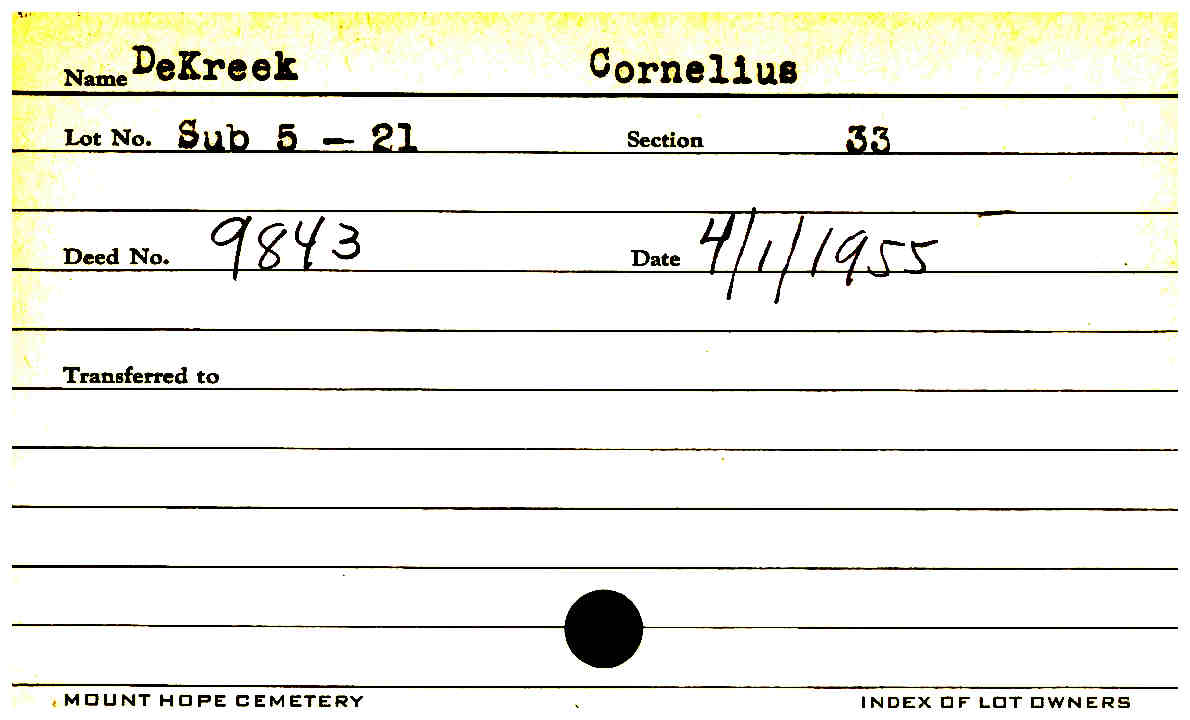 Name DeKreek Cornelius
Lot No. Sub 5 - 21 Section 33
Deed No. 9843 Date 4/1/1955
Transferred to
MOUNT HOPE CEMETERY INDEX OF LOT OWNERS